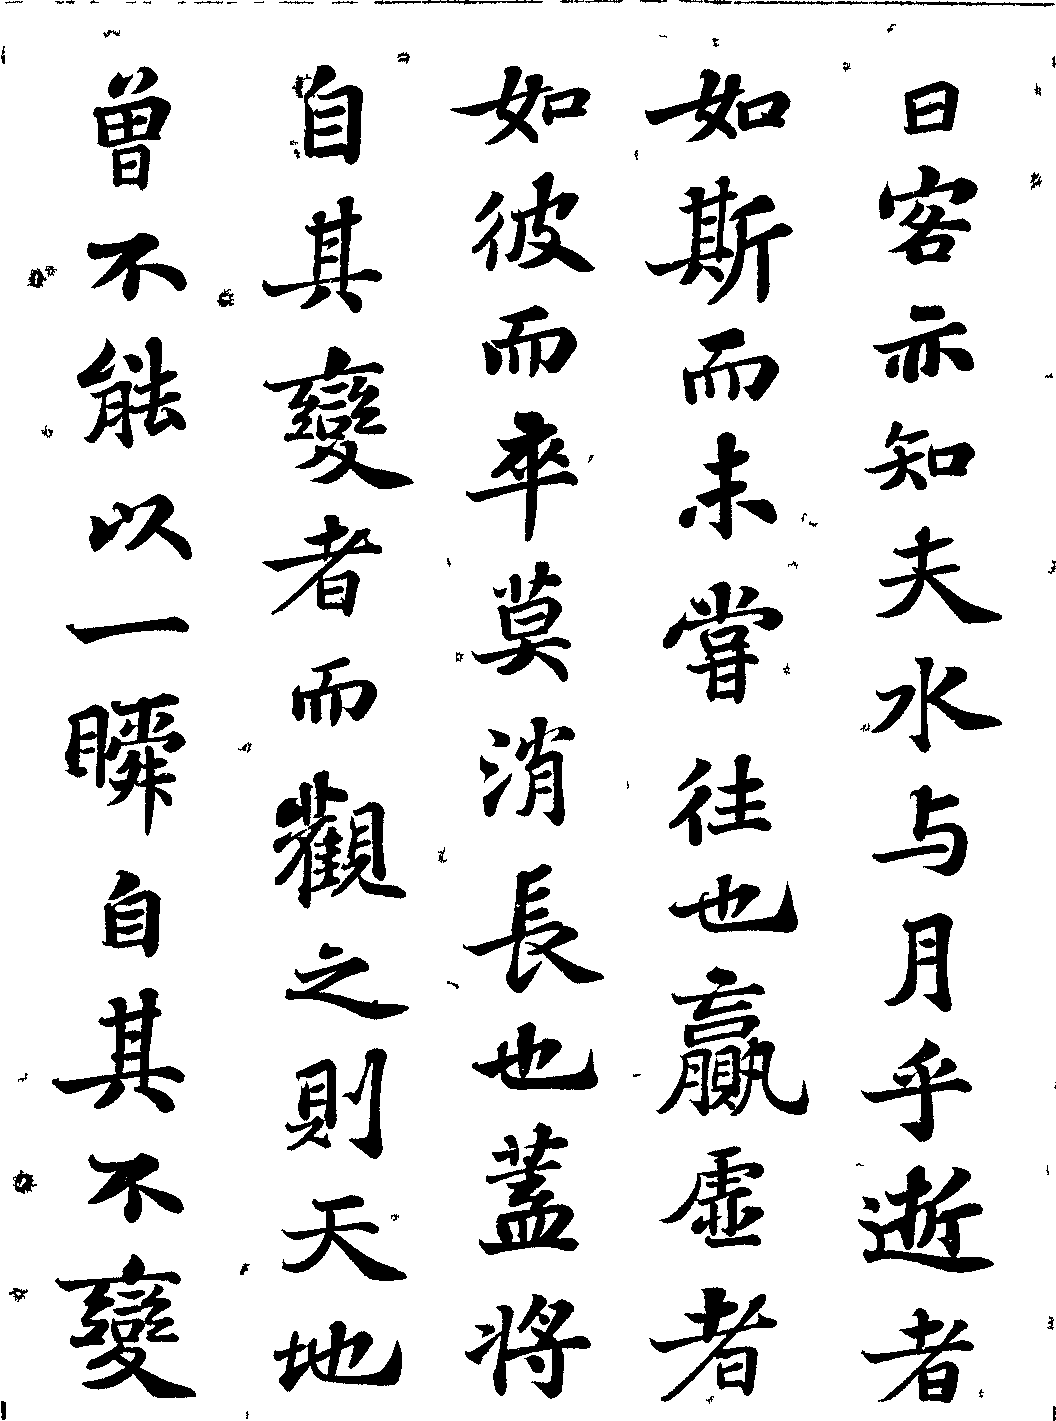 曰客亦知夫水与月乎逝者
如斯而未嘗往也贏虛者
如彼而卒莫消長也蓋將
自其變者而觀之則天地
曾不能以一瞬自其不變